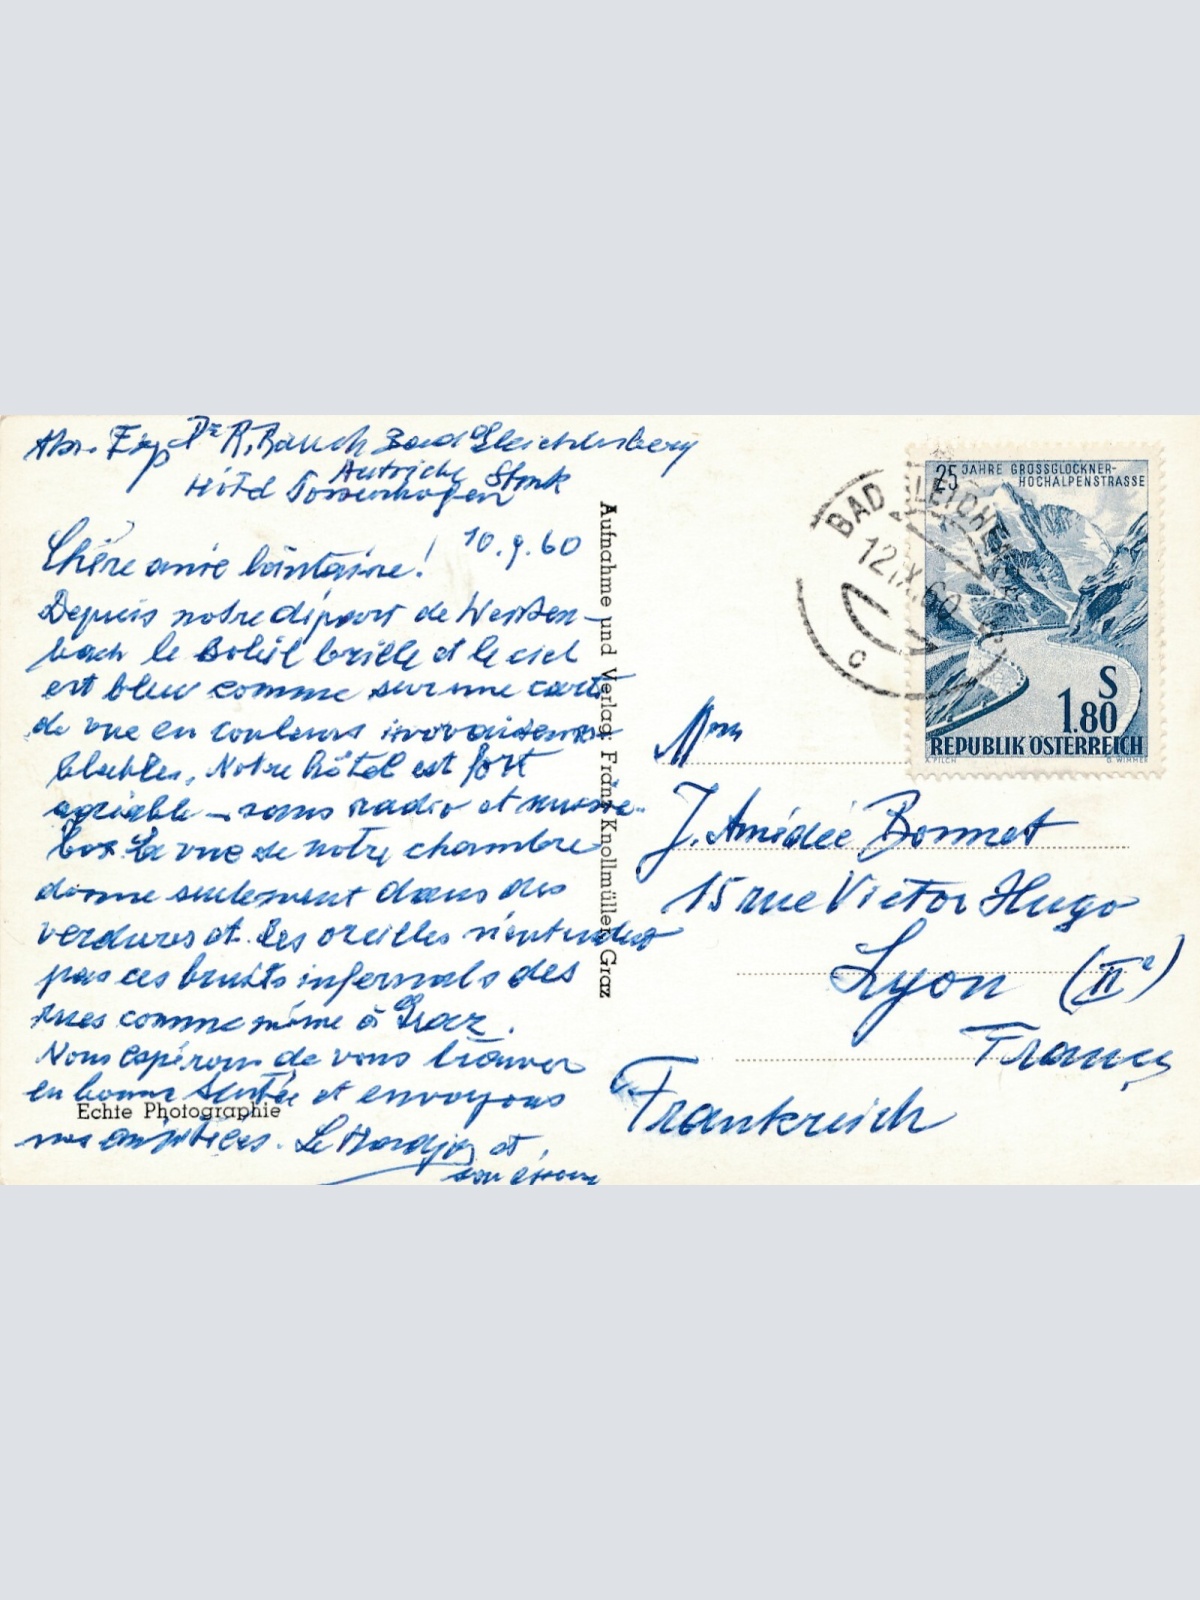 Abs. Exp Dr R. Rauch Bad Gleichenberg
Autriche Stmk
Hôtel
10.9.60
Chère amie lointaine!
Depuis notre départ de Weissen-
bach le Soleil brille et le ciel
est bleu comme sur une carte
de vue en couleurs
Notre hôtel est fort
agréable – sans radio et musik-
box. La vue de notre chambre
donne seulement dans des
verdures et les oreilles n'entendent
pas ces bruits infernals des
rues comme même à Graz.
Nous espérons de vous trouver
en bonne santée et envoyons
nos amitiées. Le et
son
Echte Photographie
Aufnahme und Verlag: Franz Knollmüller, Graz
BAD GLEICHENBERG
12.IX.60
c
25 JAHRE GROSSGLOCKNER-
HOCHALPENSTRASSE
S
1.80
REPUBLIK ÖSTERREICH
A. PILCH
G. WIMMER
Mme
J. Amédée Bonnet
15 rue Victor Hugo
Lyon (IIe)
France
Frankreich